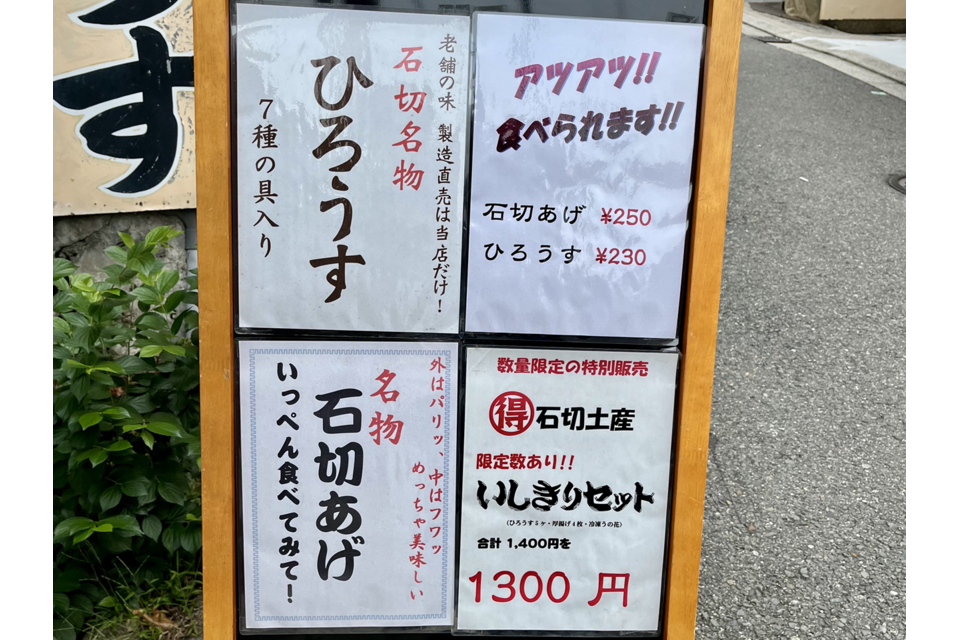 す
老舗の味 製造直売は当店だけ！
石切名物
ひろうす
７種の具入り
アツアツ!!
食べられます!!
石切あげ ¥250
ひろうす ¥230
外はパリッ、中はフワッ
めっちゃ美味しい
名物
石切あげ
いっぺん食べてみて！
数量限定の特別販売
得 石切土産
限定数あり!!
いしきりセット
（ひろうす５ヶ・厚揚げ４枚・冷凍うの花）
合計 1,400円を
1300 円